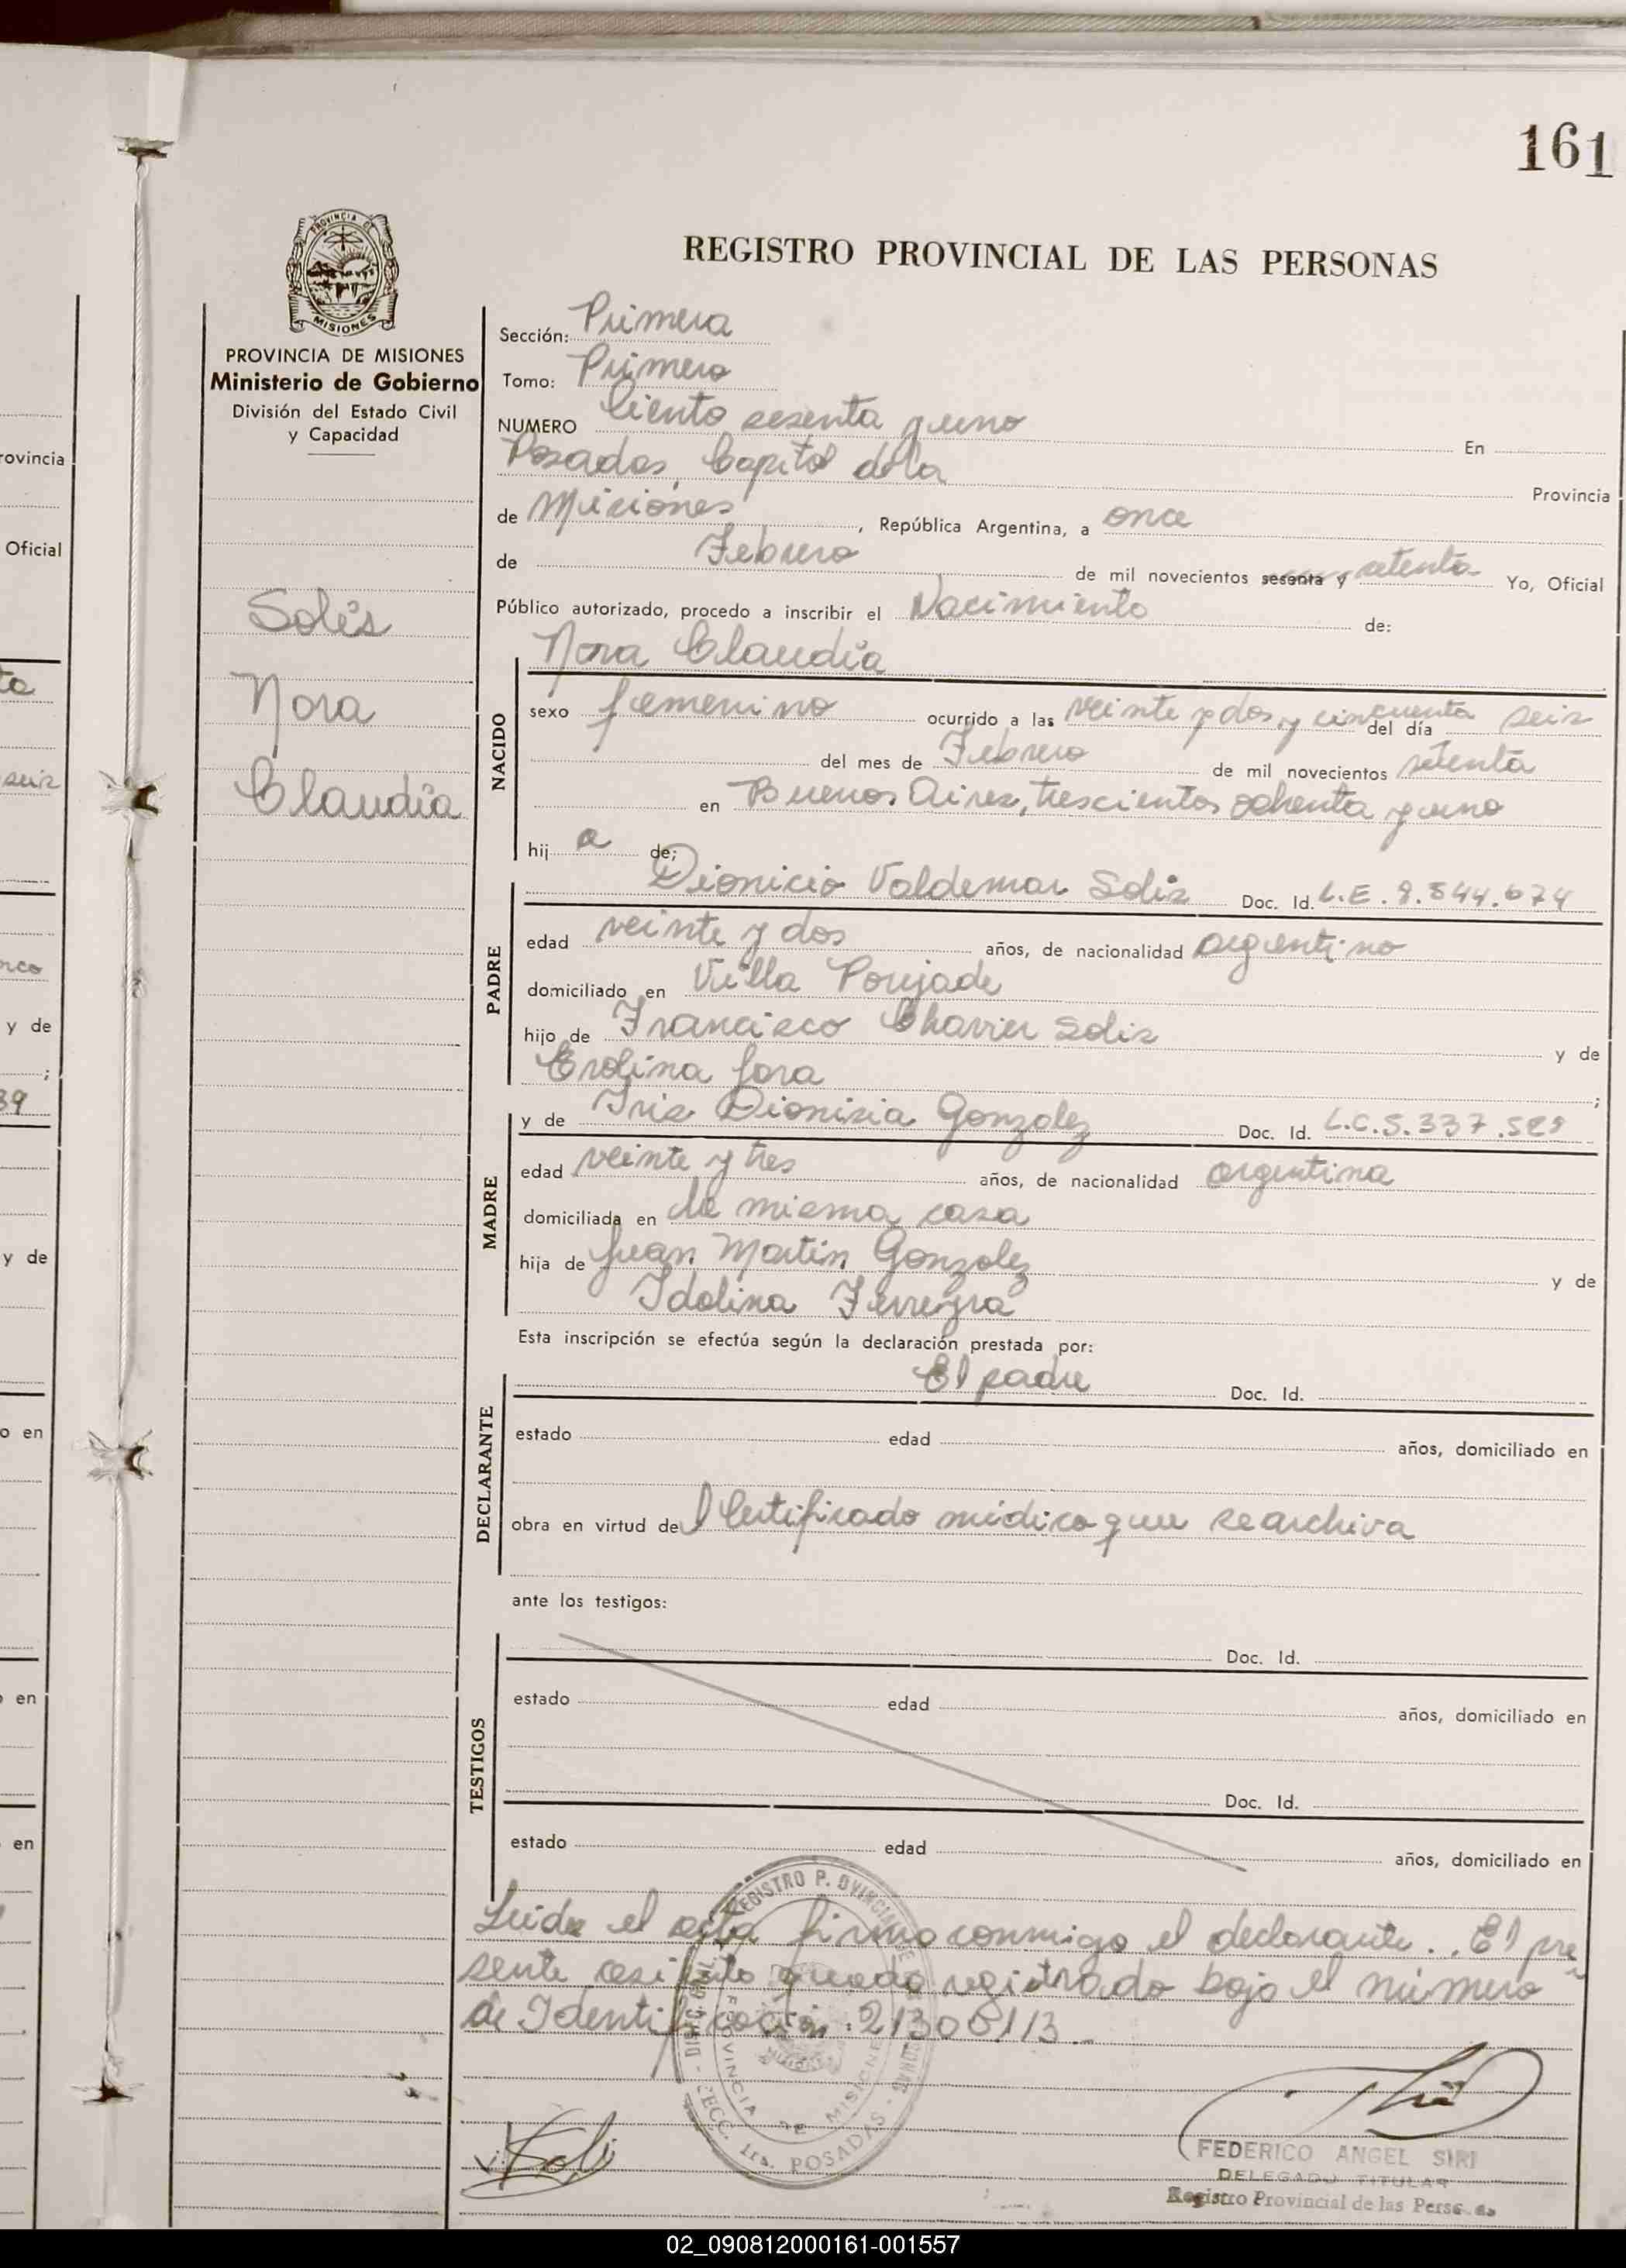 161
PROVINCIA DE
MISIONES
PROVINCIA DE MISIONES
Ministerio de Gobierno
División del Estado Civil
y Capacidad
Solís
Nora
Claudia
REGISTRO PROVINCIAL DE LAS PERSONAS
Sección: Primera
Tomo: Primero
NUMERO Ciento sesenta y uno En
Posadas, Capital de la Provincia
de Misiones, República Argentina, a once
de Febrero de mil novecientos sesenta y setenta Yo, Oficial
Público autorizado, procedo a inscribir el Nacimiento de:
Nora Claudia
NACIDO
sexo femenino ocurrido a las veinte y dos y cincuenta del día seis
del mes de Febrero de mil novecientos setenta
en Buenos Aires, trescientos ochenta y uno
hij a de;
Dionicio Valdemar Solis Doc. Id. L.E. 8.544.674
PADRE
edad veinte y dos años, de nacionalidad argentino
domiciliado en Villa Poujade
hijo de Francisco Chavier Solis y de
Erolina Jara ;
y de Iris Dionisia Gonzalez Doc. Id. L.C.
MADRE
edad veinte y tres años, de nacionalidad argentina
domiciliada en la misma casa
hija de Juan Martin Gonzalez y de
Idolina Ferreyra
Esta inscripción se efectúa según la declaración prestada por:
El padre Doc. Id.
DECLARANTE
estado edad años, domiciliado en
obra en virtud del Certificado médico que se archiva
ante los testigos:
Doc. Id.
TESTIGOS
estado edad años, domiciliado en
Doc. Id.
estado edad años, domiciliado en
Leida el acta firma conmigo el declarante.. El pre
sente asiento queda registrado bajo el número
de Identificación: 21306113
REGISTRO
PROVINCIA DE MISIONES
SECC. 1ra. POSADAS
Solis
FEDERICO ANGEL SIRI
DELEGADO TITULAR
Registro Provincial de las Perso
rovincia
Oficial
ta
seis
y de
;
39
y de
o en
en
en
02_090812000161-001557